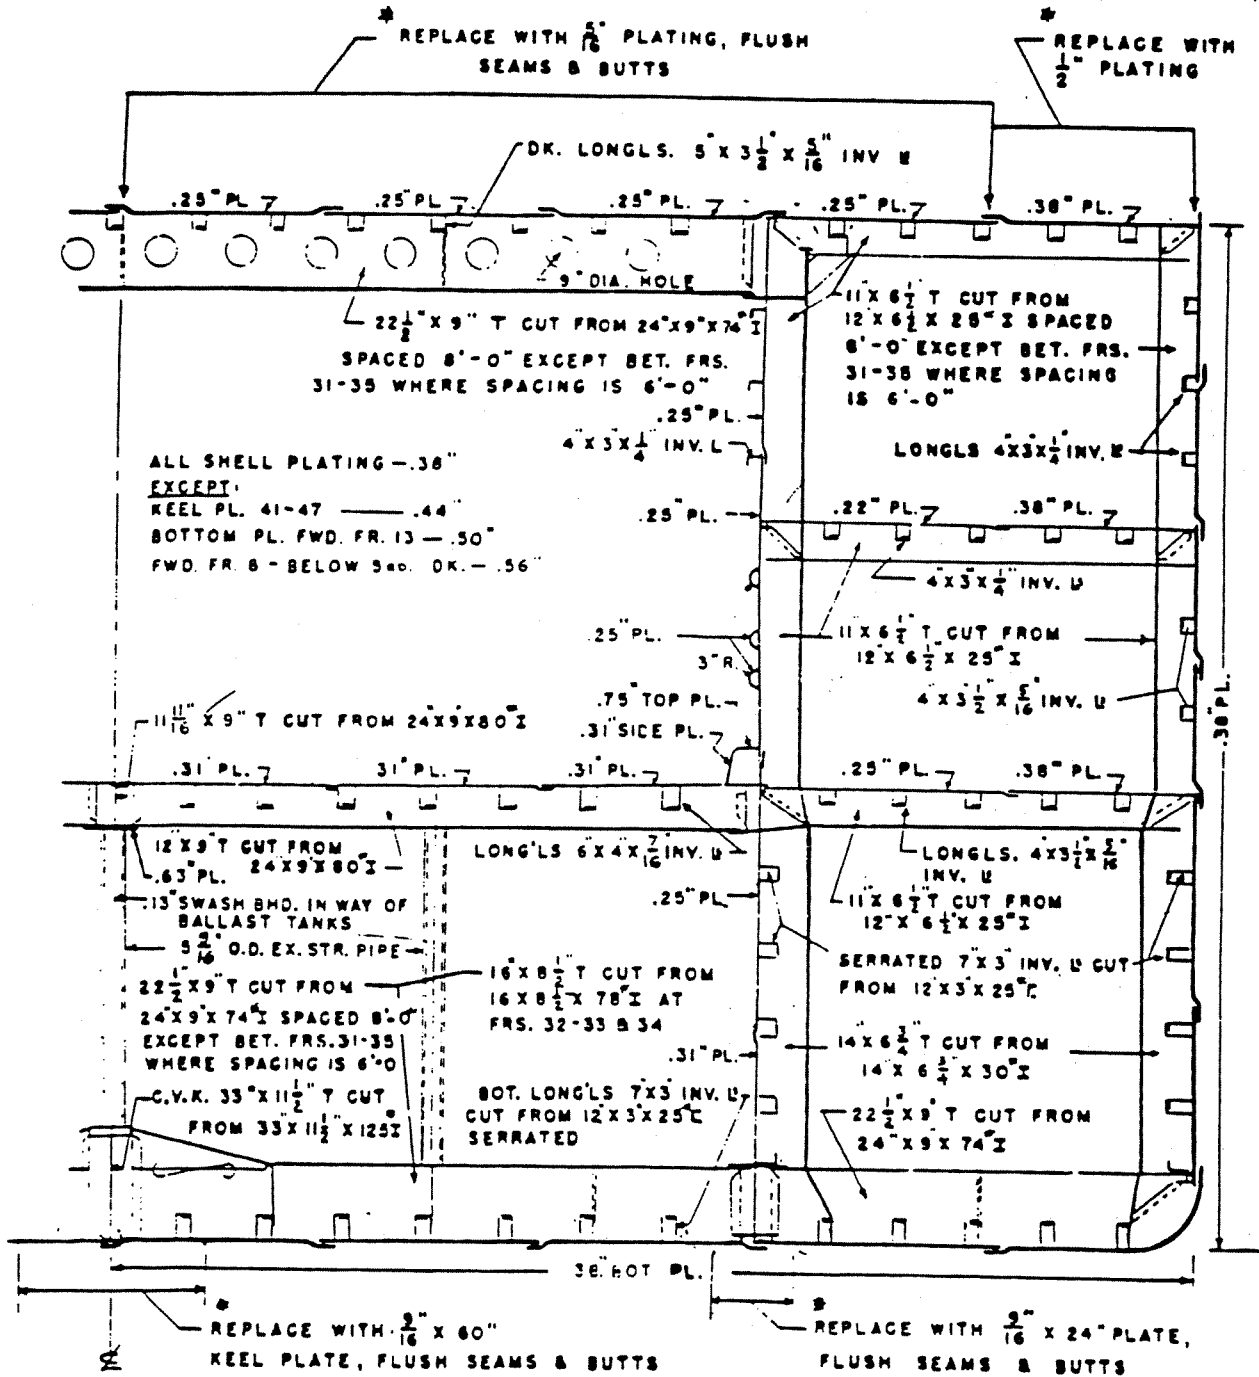 *
REPLACE WITH 5/16" PLATING, FLUSH
SEAMS & BUTTS
*
REPLACE WITH
1/2" PLATING
DK. LONGLS. 5" X 3 1/2" X 5/16" INV L
.25" PL.
.25" PL.
.25" PL.
.25" PL.
.38" PL.
9" DIA. HOLE
22 1/2" X 9" T CUT FROM 24" X 9" X 74# I
SPACED 8'-0" EXCEPT BET. FRS.
31-35 WHERE SPACING IS 6'-0"
11" X 6 1/2" T CUT FROM
12" X 6 1/2" X 25# I SPACED
8'-0" EXCEPT BET. FRS.
31-35 WHERE SPACING
IS 6'-0"
.25" PL.
4" X 3" X 1/4" INV. L
LONGLS 4" X 3" X 1/4" INV. L
ALL SHELL PLATING - .38"
EXCEPT:
KEEL PL. 41-47 — .44"
BOTTOM PL. FWD. FR. 13 — .50"
FWD. FR. 8 - BELOW DK. — .56"
.25" PL.
.22" PL.
.38" PL.
4" X 3" X 1/4" INV. L
.25" PL.
3" R.
11" X 6 1/2" T CUT FROM
12" X 6 1/2" X 25# I
4" X 3 1/2" X 5/16" INV. L
.75" TOP PL.
.31" SIDE PL.
.38" PL.
11 11/16" X 9" T CUT FROM 24" X 9" X 80# I
.31" PL.
.31" PL.
.31" PL.
.25" PL.
.38" PL.
12" X 9" T CUT FROM
24" X 9" X 80# I
.63" PL.
LONG'LS 6" X 4" X 7/16" INV. L
LONGLS. 4" X 3 1/2" X 5/16"
INV. L
.13" SWASH BHD. IN WAY OF
BALLAST TANKS
.25" PL.
11" X 6 1/2" T CUT FROM
12" X 6 1/2" X 25# I
5 9/16" O.D. EX. STR. PIPE
22 1/2" X 9" T CUT FROM
24" X 9" X 74# I SPACED 8'-0"
EXCEPT BET. FRS. 31-35
WHERE SPACING IS 6'-0
16" X 8 1/2" T CUT FROM
16" X 8 1/2" X 78# I AT
FRS. 32-33 & 34
SERRATED 7" X 3" INV. L CUT
FROM 12" X 3" X 25# [
.31" PL.
14" X 6 3/4" T CUT FROM
14" X 6 3/4" X 30# I
C.V.K. 33" X 11 1/2" T CUT
FROM 33" X 11 1/2" X 125# I
BOT. LONG'LS 7" X 3" INV. L
CUT FROM 12" X 3" X 25# [
SERRATED
22 1/2" X 9" T CUT FROM
24" X 9" X 74# I
.38" BOT PL.
*
REPLACE WITH 9/16" X 60"
KEEL PLATE, FLUSH SEAMS & BUTTS
*
REPLACE WITH 9/16" X 24" PLATE,
FLUSH SEAMS & BUTTS